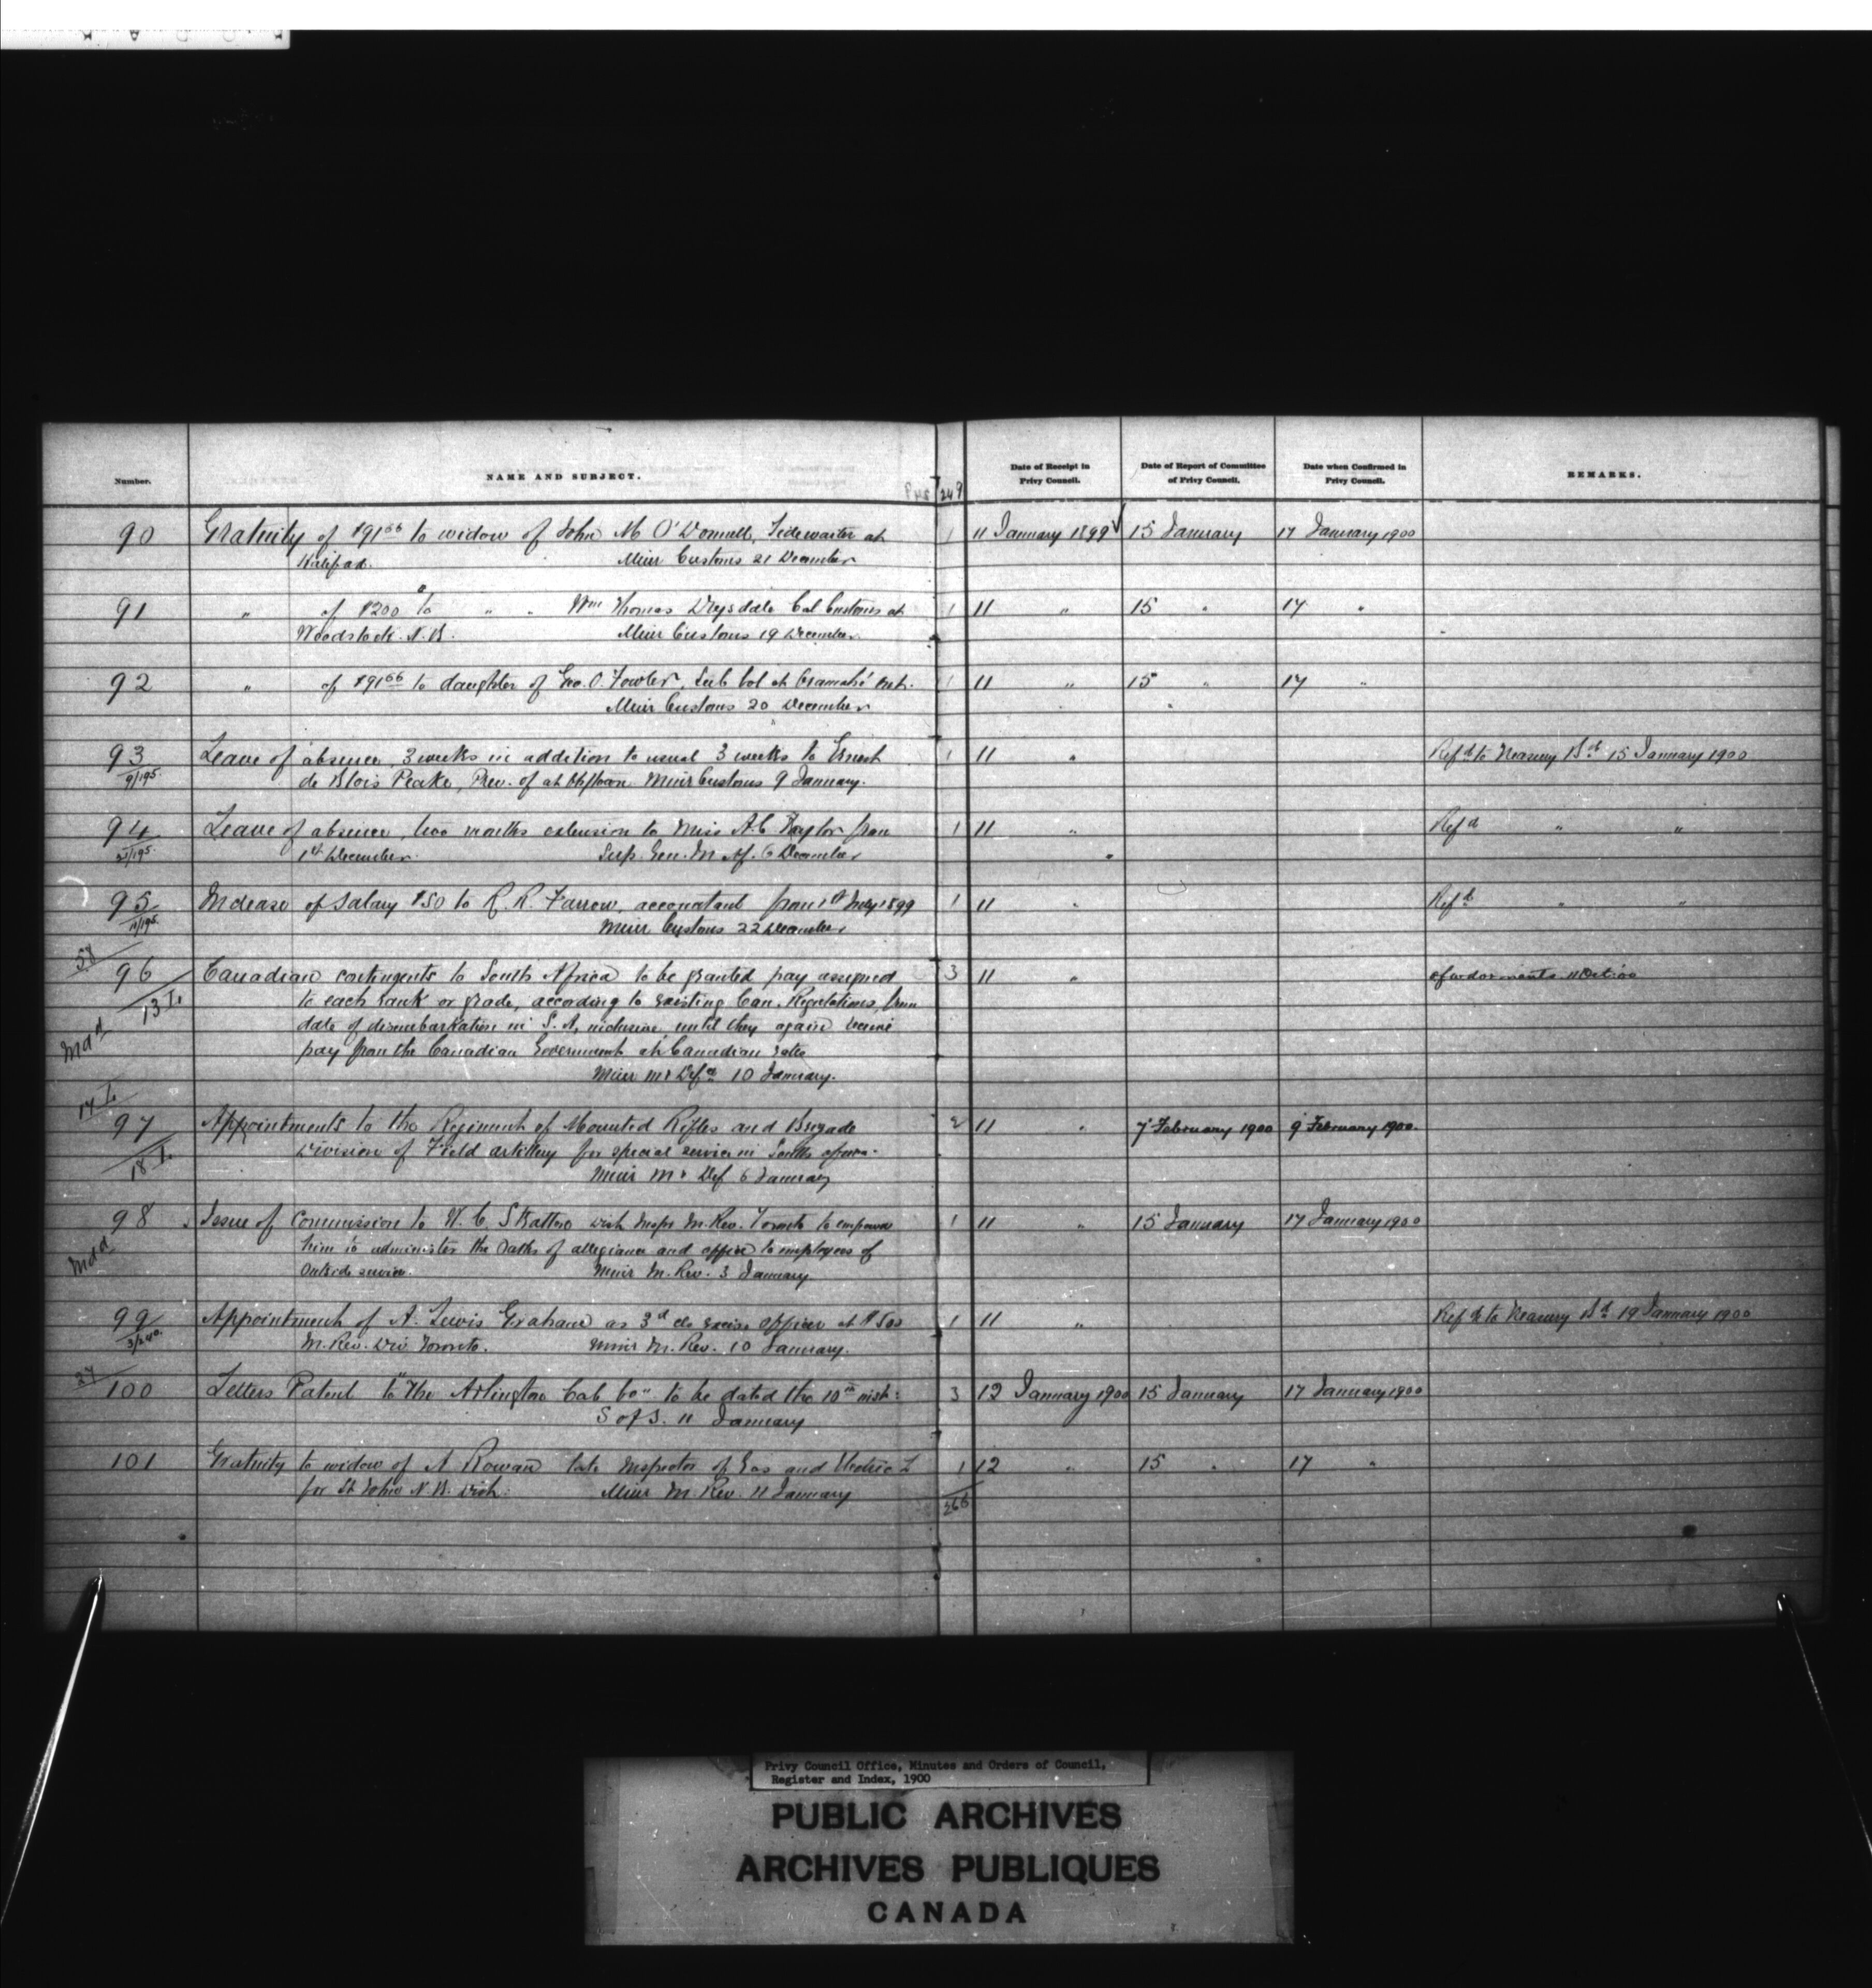 Number. NAME AND SUBJECT. Date of Receipt in Privy Council. Date of Report of Committee of Privy Council. Date when Confirmed in Privy Council. REMARKS.
249
90 Gratuity of $91 66 to widow of John M O'Donnell, Tidewaiter at 1 11 January 1899 ✓ 15 January 17 January 1900
Halifax. Minr Customs 21 December
91 " of $200 to " " Wm Thomas Drysdale Col Customs at 1 11 " 15 " 17 "
Woodstock. N.B. Minr Customs 19 December
92 " of $91 66 to daughter of Geo. O. Fowler, Sub Col at Cramahé Ont. 1 11 " 15 " 17 "
Minr Customs 20 December
93 Leave of absence, 3 weeks in addition to usual 3 weeks to Ernest 1 11 " Refd to Treasury Bd 15 January 1900
9/195 de Blois Peake, Prev. of at Minr Customs 9 January.
94 Leave of absence, two months extension to Miss A.C. Taylor from 1 11 " Refd " "
1st December. Sup. Gen. 6 December
95 Increase of salary $50 to R. R. Farrow, accountant from 1st July 1899 1 11 " Refd " "
11/195 Minr Customs 22 December
58
96 Canadian contingents to South Africa to be granted pay assigned 3 11 "
13 L to each rank or grade, according to existing Can. Regulations, from
date of disembarkation in S. A, inclusive until they again receive
pay from the Canadian Government at Canadian rates
Minr M & Defce 10 January.
14 L
97 Appointments to the Regiment of Mounted Rifles and Brigade 2 11 " 7 February 1900 9 February 1900.
18 L Division of Field artillery for special service in South Africa.
Minr M & Def 6 January
98 Issue of commission to W. C. Stratton Dist Inspr In. Rev. Toronto to empower 1 11 " 15 January 17 January 1900
him to administer the Oaths of allegiance and office to employees of
Outside service. Minr In. Rev. 3 January
99 Appointment of A. Lewis Graham as 3rd cls Excise officer at $500 1 11 " Refd to Treasury Bd 19 January 1900
3/240. In. Rev. Div Toronto. Minr In. Rev. 10 January.
27
100 Letters Patent to "The Arlington Cab Co" to be dated the 10th inst: 3 12 January 1900 15 January 17 January 1900
S of S. 11 January
101 Gratuity to widow of A Rowan late Inspector of Gas and Electric L 1 12 " 15 " 17 "
for St John N.B. Dist. Minr In. Rev. 11 January
266
Privy Council Office, Minutes and Orders of Council,
Register and Index, 1900
PUBLIC ARCHIVES
ARCHIVES PUBLIQUES
CANADA